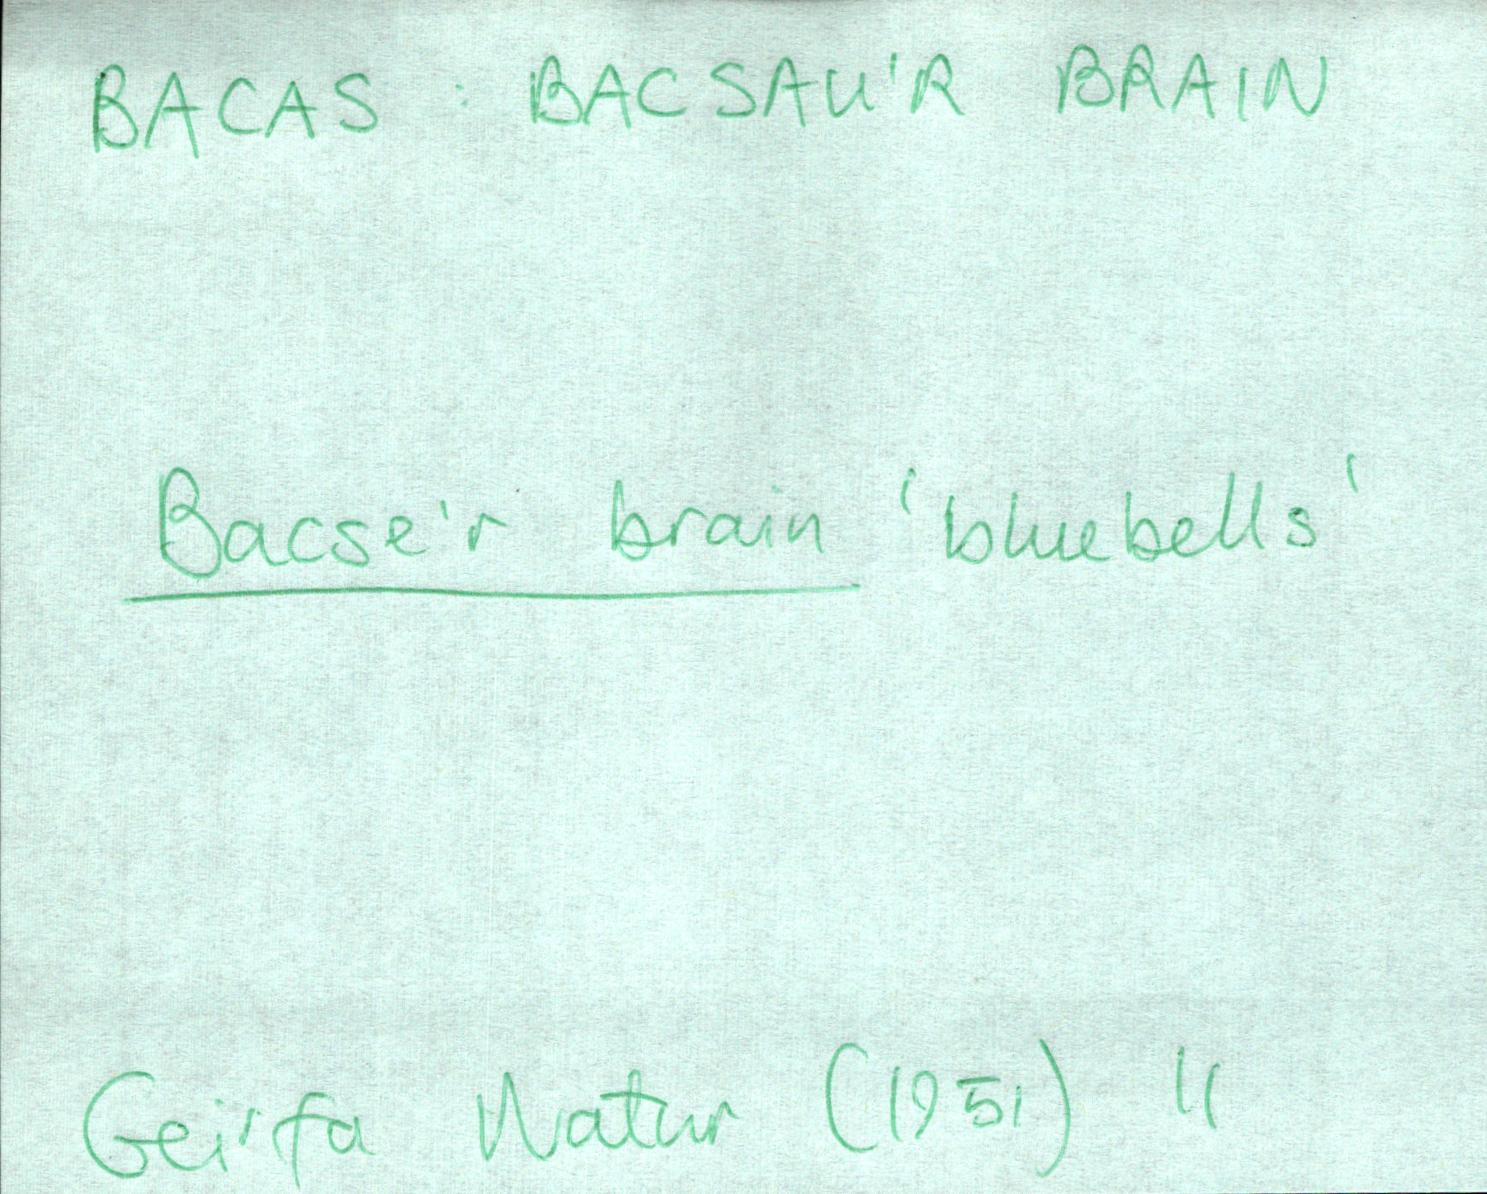 BACAS : BACSAU'R BRAIN
Bacse'r brain 'bluebells'
Geirfa Natur (1951) 11